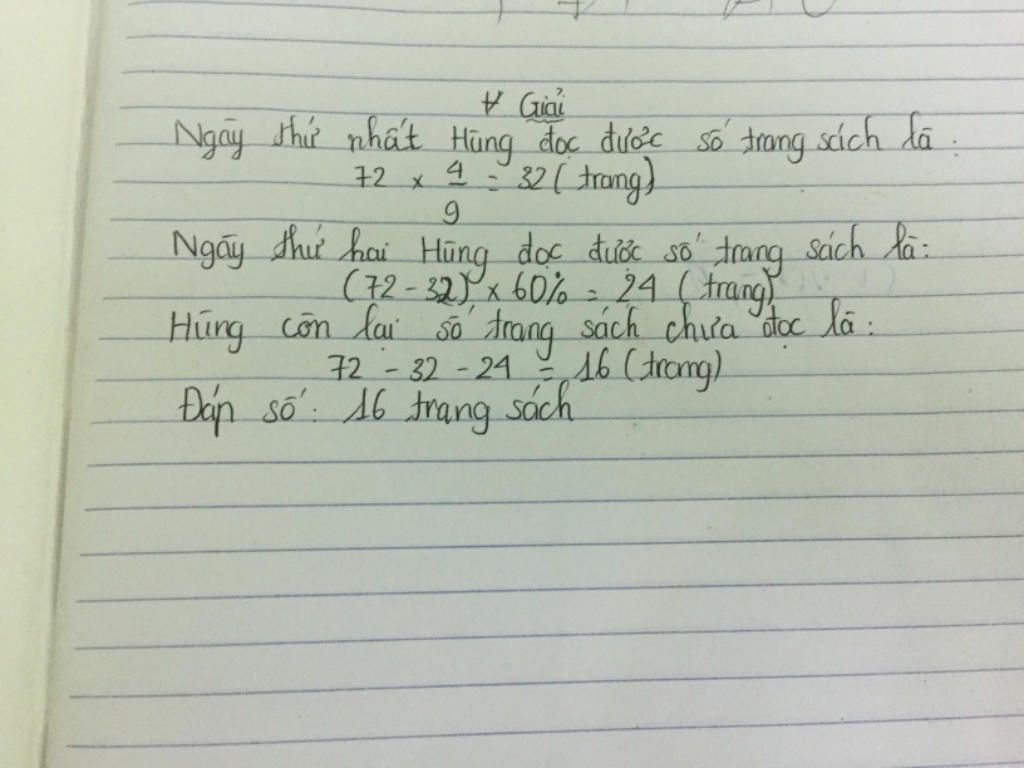 Giải
Ngày thứ nhất Hùng đọc được số trang sách là:
72 × 4/9 = 32 (trang)
Ngày thứ hai Hùng đọc được số trang sách là:
(72 - 32) × 60% = 24 (trang)
Hùng còn lại số trang sách chưa đọc là:
72 - 32 - 24 = 16 (trang)
Đáp số: 16 trang sách